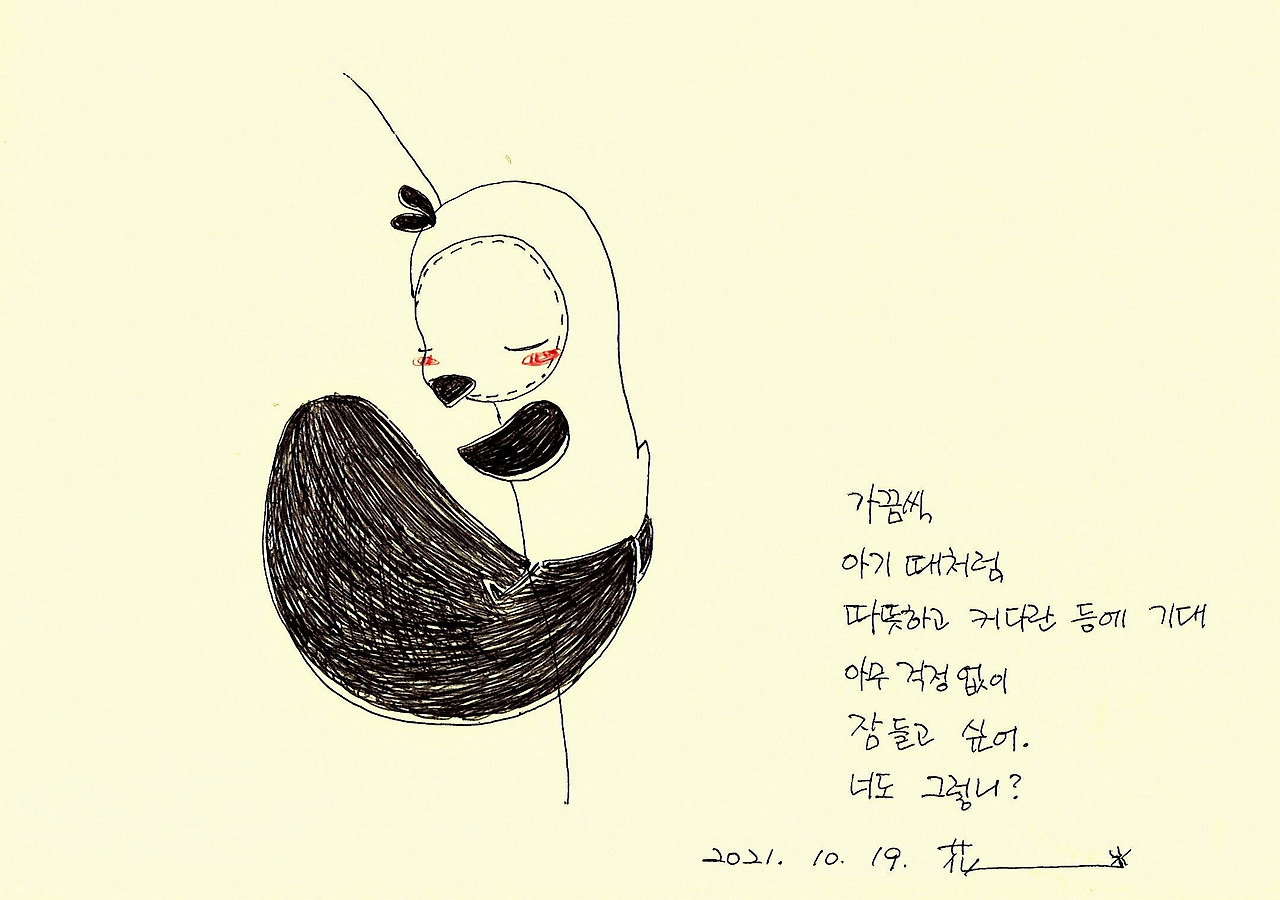 가끔씩,
아기 때처럼
따뜻하고 커다란 등에 기대
아무 걱정 없이
잠들고 싶어.
너도 그렇니?
2021. 10. 19. 花